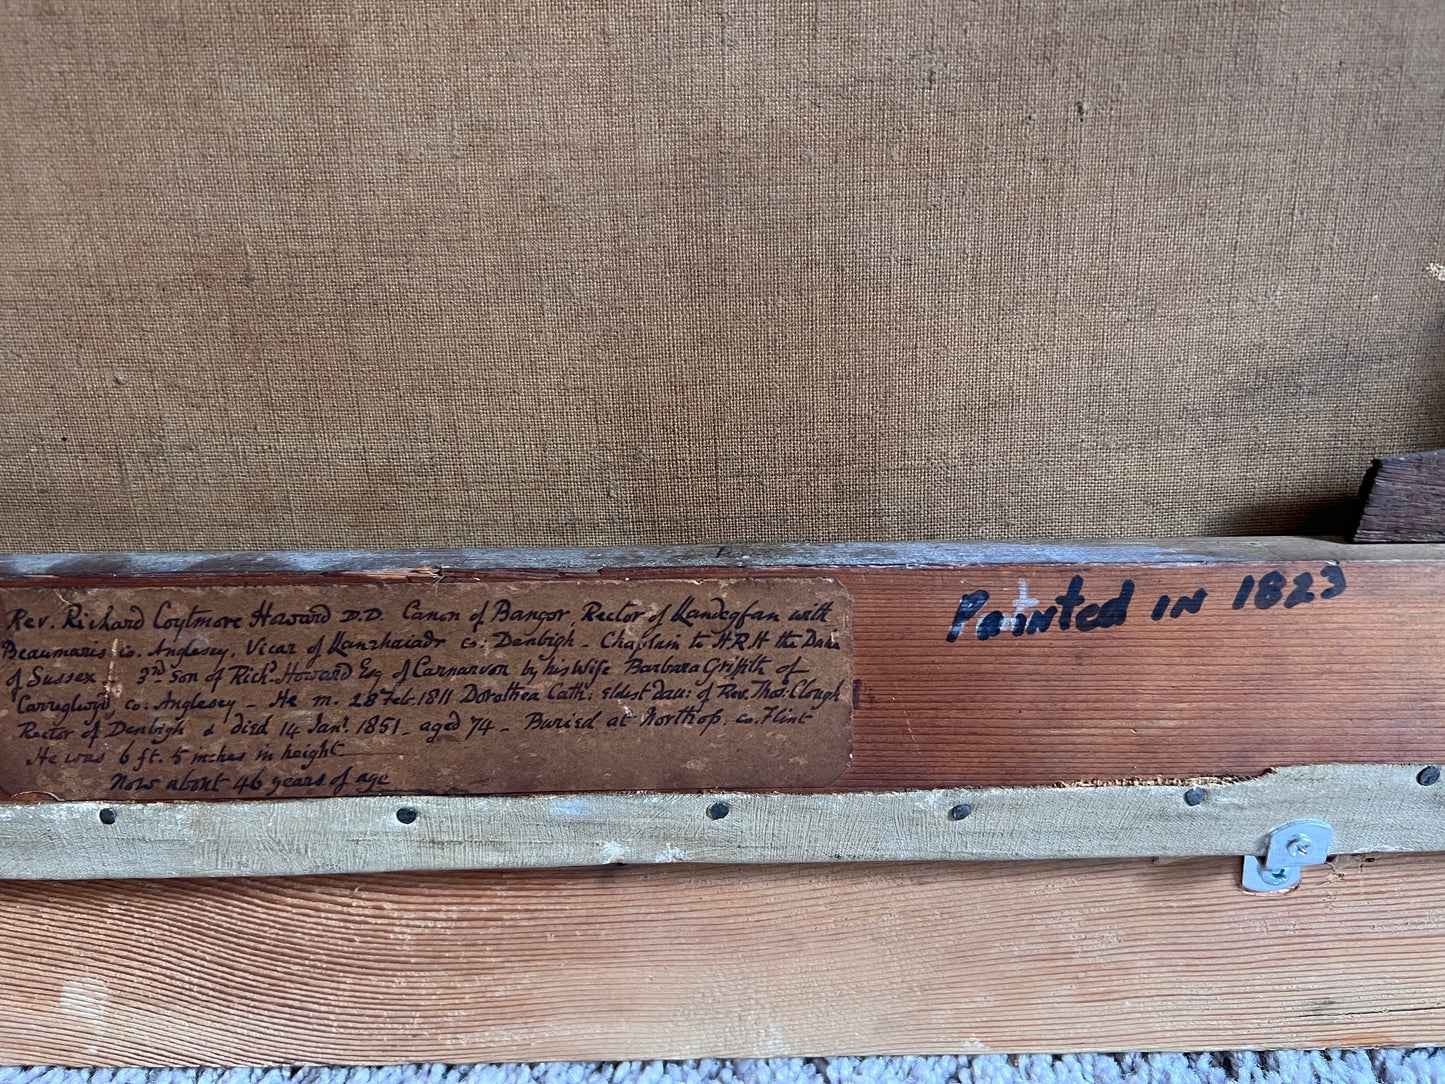 Rev. Richard Coytmore Howard D.D. Canon of Bangor, Rector of Llandegfan with
Beaumaris Co. Anglesey, Vicar of Llanrhaiadr co: Denbigh - Chaplain to H.R.H the Duke
of Sussex. 3rd son of Richd. Howard Esq of Carnarvon by his wife Barbara Griffith of
Carreglwyd, co: Anglesey - He m. 28 Feb. 1811 Dorothea Cath: eldest dau: of Rev. Thos: Clough
Rector of Denbigh & died 14 Jany. 1851 - aged 74 - Buried at Northop, co. Flint
He was 6 ft. 5 inches in height
Now about 46 years of age
Painted in 1823